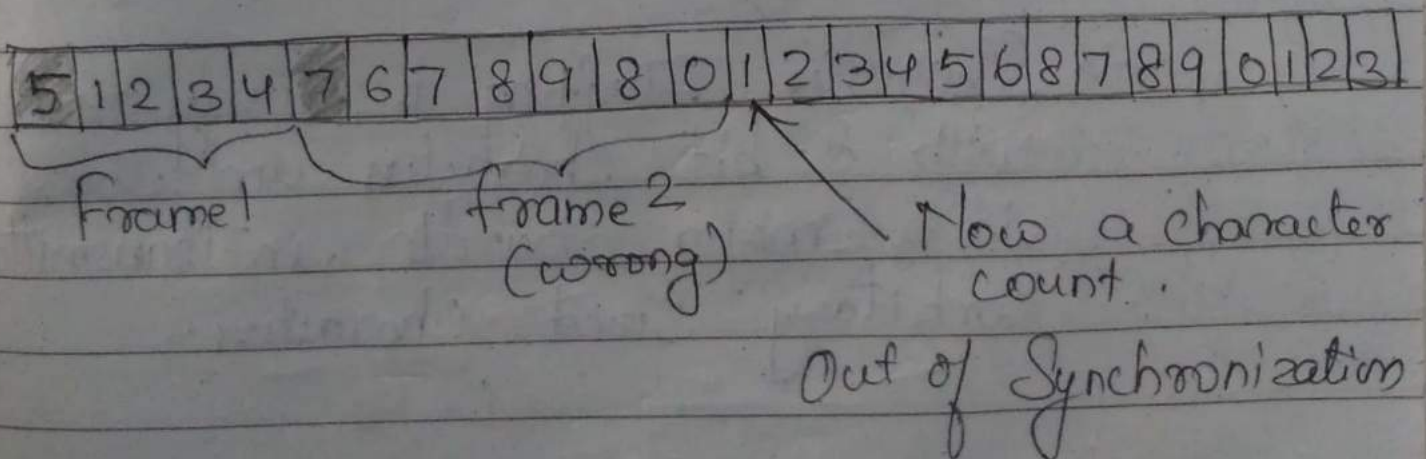 5 1 2 3 4 7 6 7 8 9 8 0 1 2 3 4 5 6 8 7 8 9 0 1 2 3
Frame 1 frame 2 Now a character
(wrong) count.
Out of Synchronization